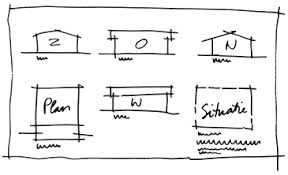 Z O N
Plan W Situatie